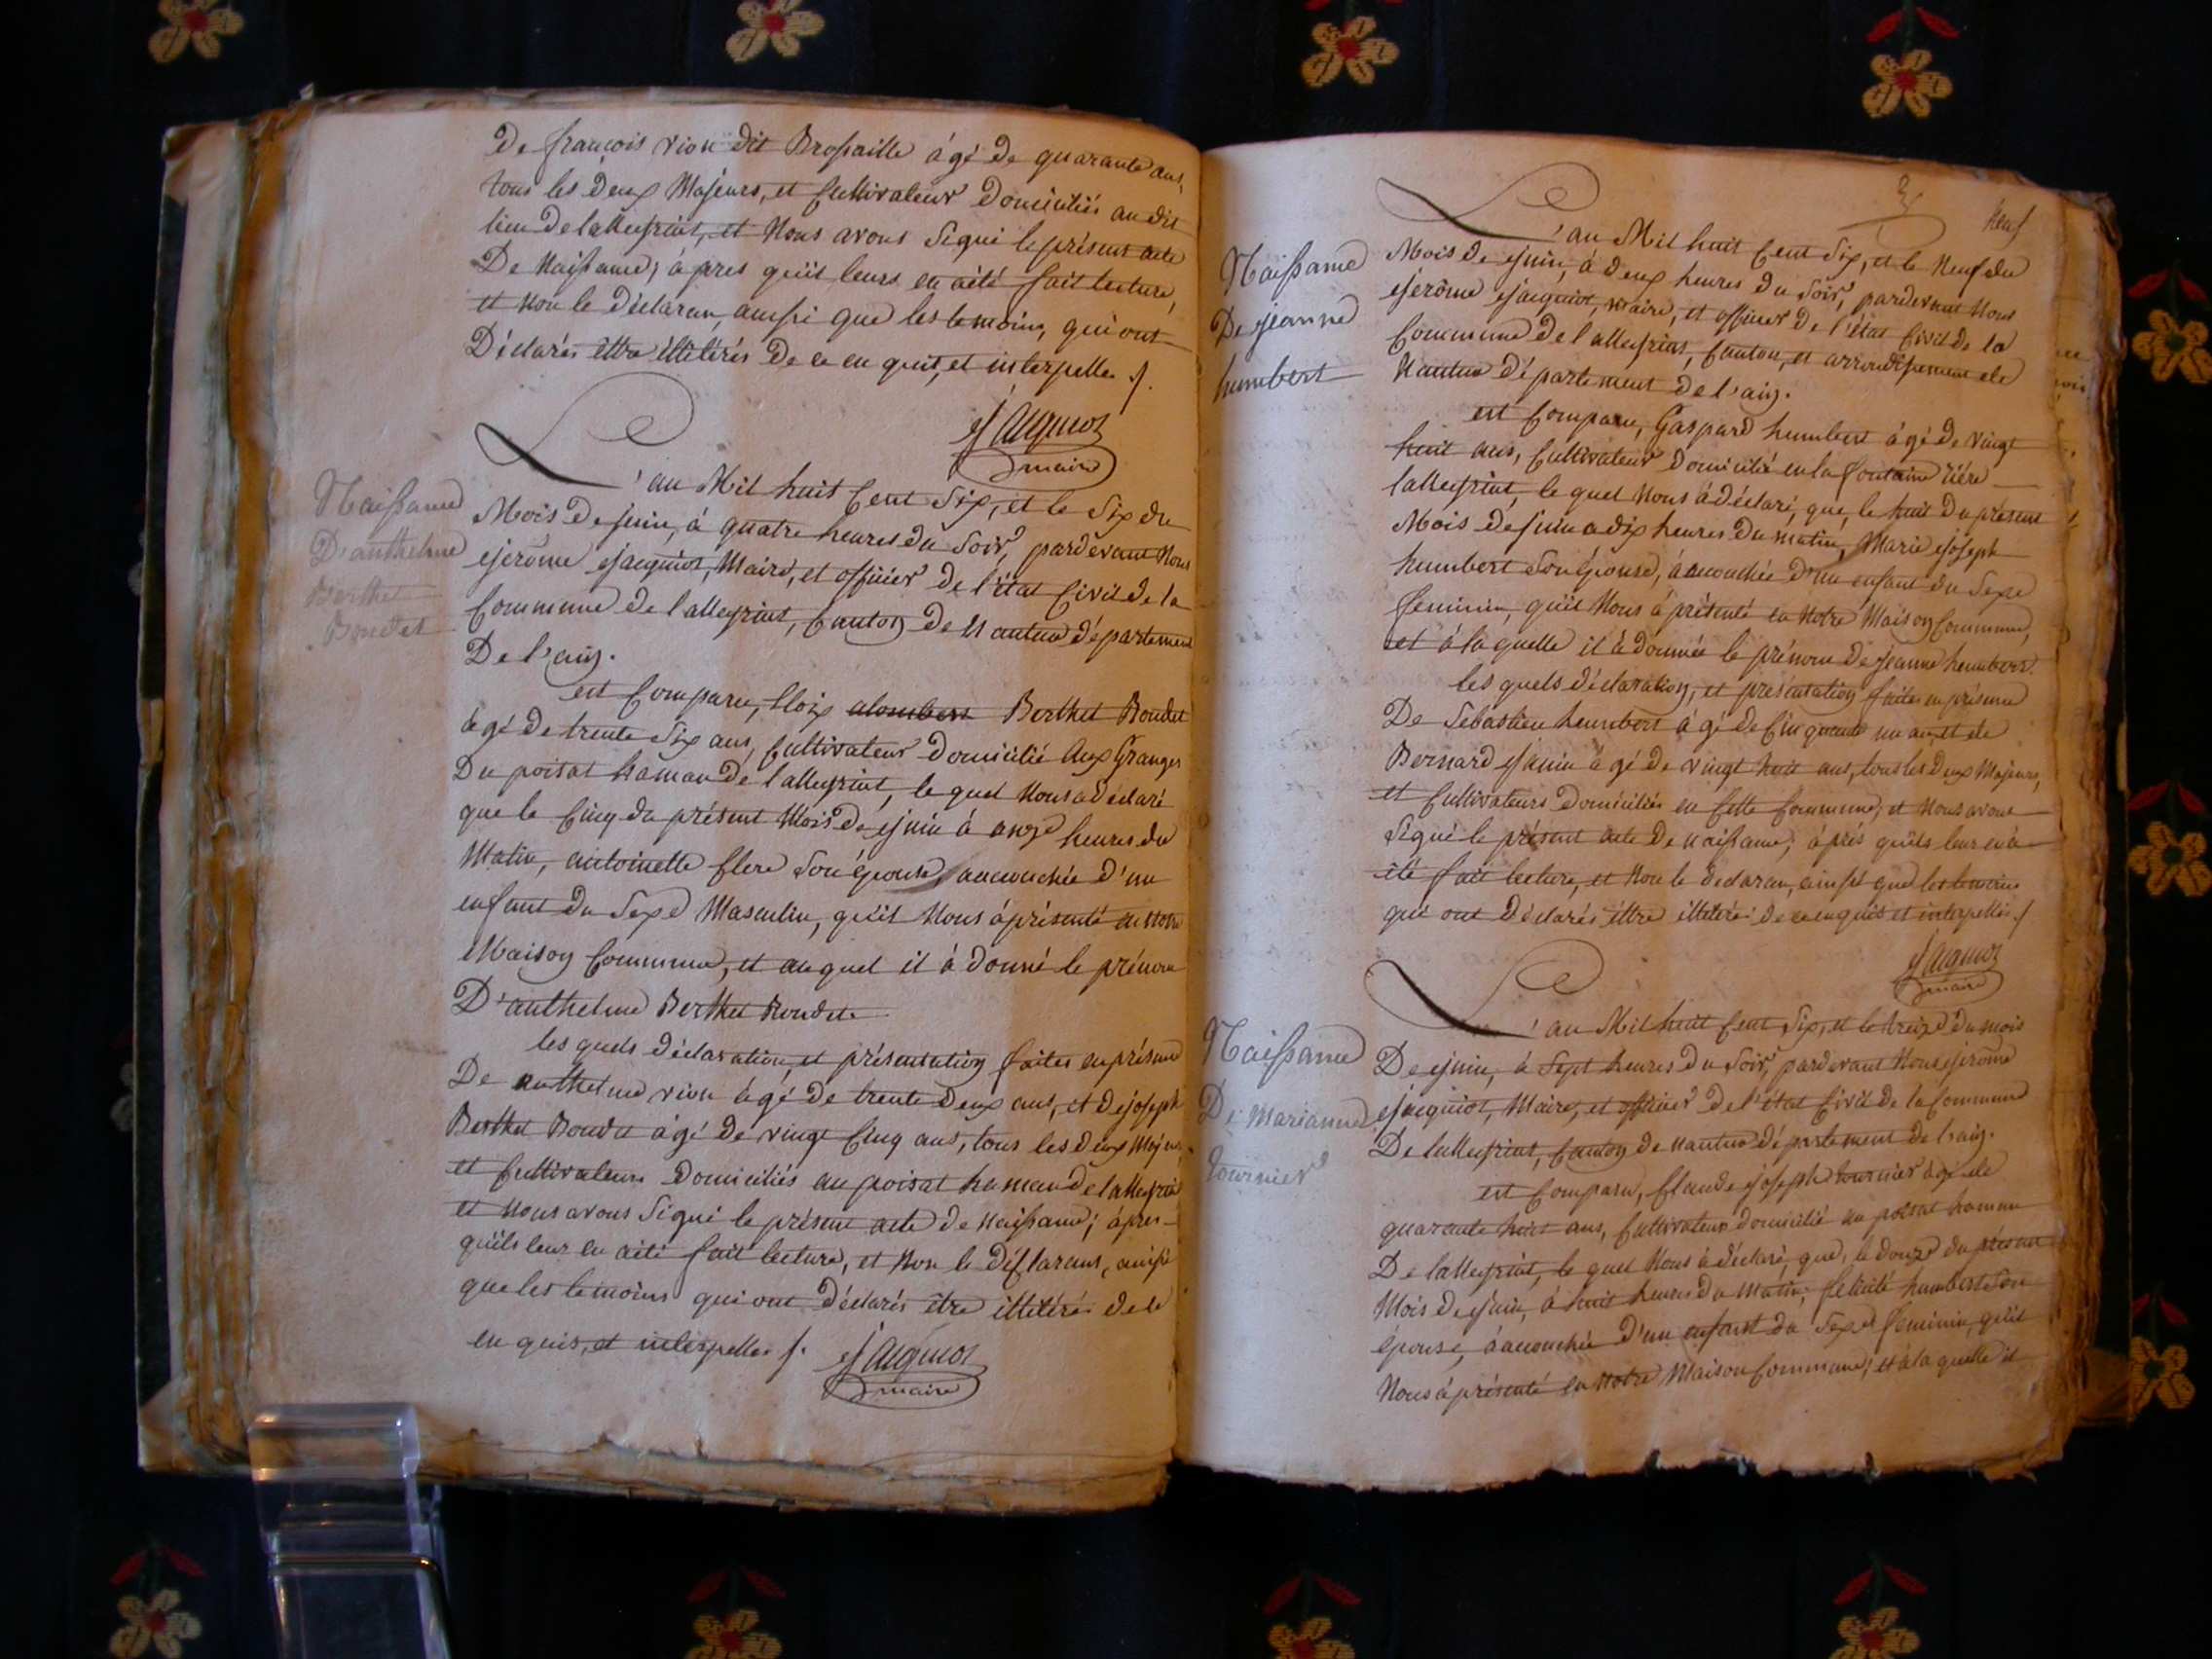 De françois vion dit Brossaille âgé de quarante ans,
tous les deux Majeurs, et Cultivateur Domiciliés audit
lieu de lalleyriat, et Nous avons Signé le présent acte
De Naissance; à pres quil leurs en aété fait lecture,
et non le Déclaran, aussi que les temoins, qui ont
Déclarés êttre illitérés De ce en quis, et interpellés ./.
Jacquiot
maire
Naissance
D'anthelme
Berthet
Boudet
L'an Mil huit Cent Six, et le Six du
Mois de juin, à quatre heures du Soir, pardevant Nous
jerôme jacquiot, Maire, et officier de l'état Civil de la
Commune de lalleyriat, Canton de Nantua département
De l'ain.
est Comparu, Cloix alombert Berthet Boudet
âgé de trente Six ans, Cultivateur Domicilié Aux Granges
Du poisat hamau de lalleyriat, le quel Nous a déclaré
que le Cinq du présent Mois de juin à onze heures du
Matin, antoinette Clere Son épouse, accouchée d'un
enfant du Sexe Masculin, qu'il Nous à présenté en notre
Maison Commune, et au quel il à donné le prénom
D'anthelme Berthet Boudet.
les quels déclaration, et présentation faites en présence
De anthelme vion âgé de trente deux ans, et de joseph
Berthet Boudet âgé de vingt Cinq ans, tous les deux Majeurs,
et Cultivateurs Domiciliés au poisat hamau de lalleyriat
et Nous avons Signé le présent acte de Naissance; àpres
quils leur en aété fait lecture, et Non le Déclarant, ainsi
que les temoins qui ont Déclarés être illitérés de ce
en quis, et interpellés ./.
Jacquiot
maire
Neuf
Naissance
De jeanne
humbert
L'an Mil huit Cent Six, et le Neuf du
Mois de juin, à deux heures du Soir, pardevant Nous
jerôme jacquiot, maire, et officier de l'état Civil de la
Commune de lalleyriat, Canton, et arrondissement de
Nantua département de l'ain.
est Comparu, Gaspard humbert âgé de vingt
huit ans, Cultivateur Domicilié en la Fontaine rière
lalleyriat, le quel Nous à déclaré, que, le huit du présent
Mois de juin a dix heures du matin, Marie joseph
humbert Son épouse, à accouchée d'un enfant du Sexe
feminin, quil Nous à présenté en Notre Maison Commune,
et à la quelle il à donnée le prénom de jeanne humbert.
les quels déclaration, et présentation faites en présence
De Sebastien humbert âgé de Cinquante un an, et de
Bernard janin âgé de vingt huit ans, tous les deux Majeurs,
et Cultivateurs Domiciliés en Cette Commune; et Nous avons
Signé le présent acte De naissance; àprés quils leur en à
été fait lecture, et Non le declaran, ainsi que les temoins
qui ont Déclarés êttre illitérés de ce en quis et interpellés ./.
Jacquiot
maire
Naissance
De Marianne
tournier
L'an Mil huit Cent Six, et le treize du mois
De juin, à Sept heures du Soir, pardevant Nous jerôme
jacquiot, Maire, et officier de l'état Civil de la Commune
De lalleyriat, Canton de nantua département de l'ain.
est Comparu, Claude joseph tournier âgé de
quarante huit ans, Cultivateur domicilié au poisat hamau
De lalleyriat, le quel Nous à déclaré, que, le douze du présent
Mois de juin, à huit heures du matin, felicité humbert Son
épouse, à accouchée d'un enfant du Sexe feminin, quil
Nous à présenté en Notre Maison Commune; et à la quelle il